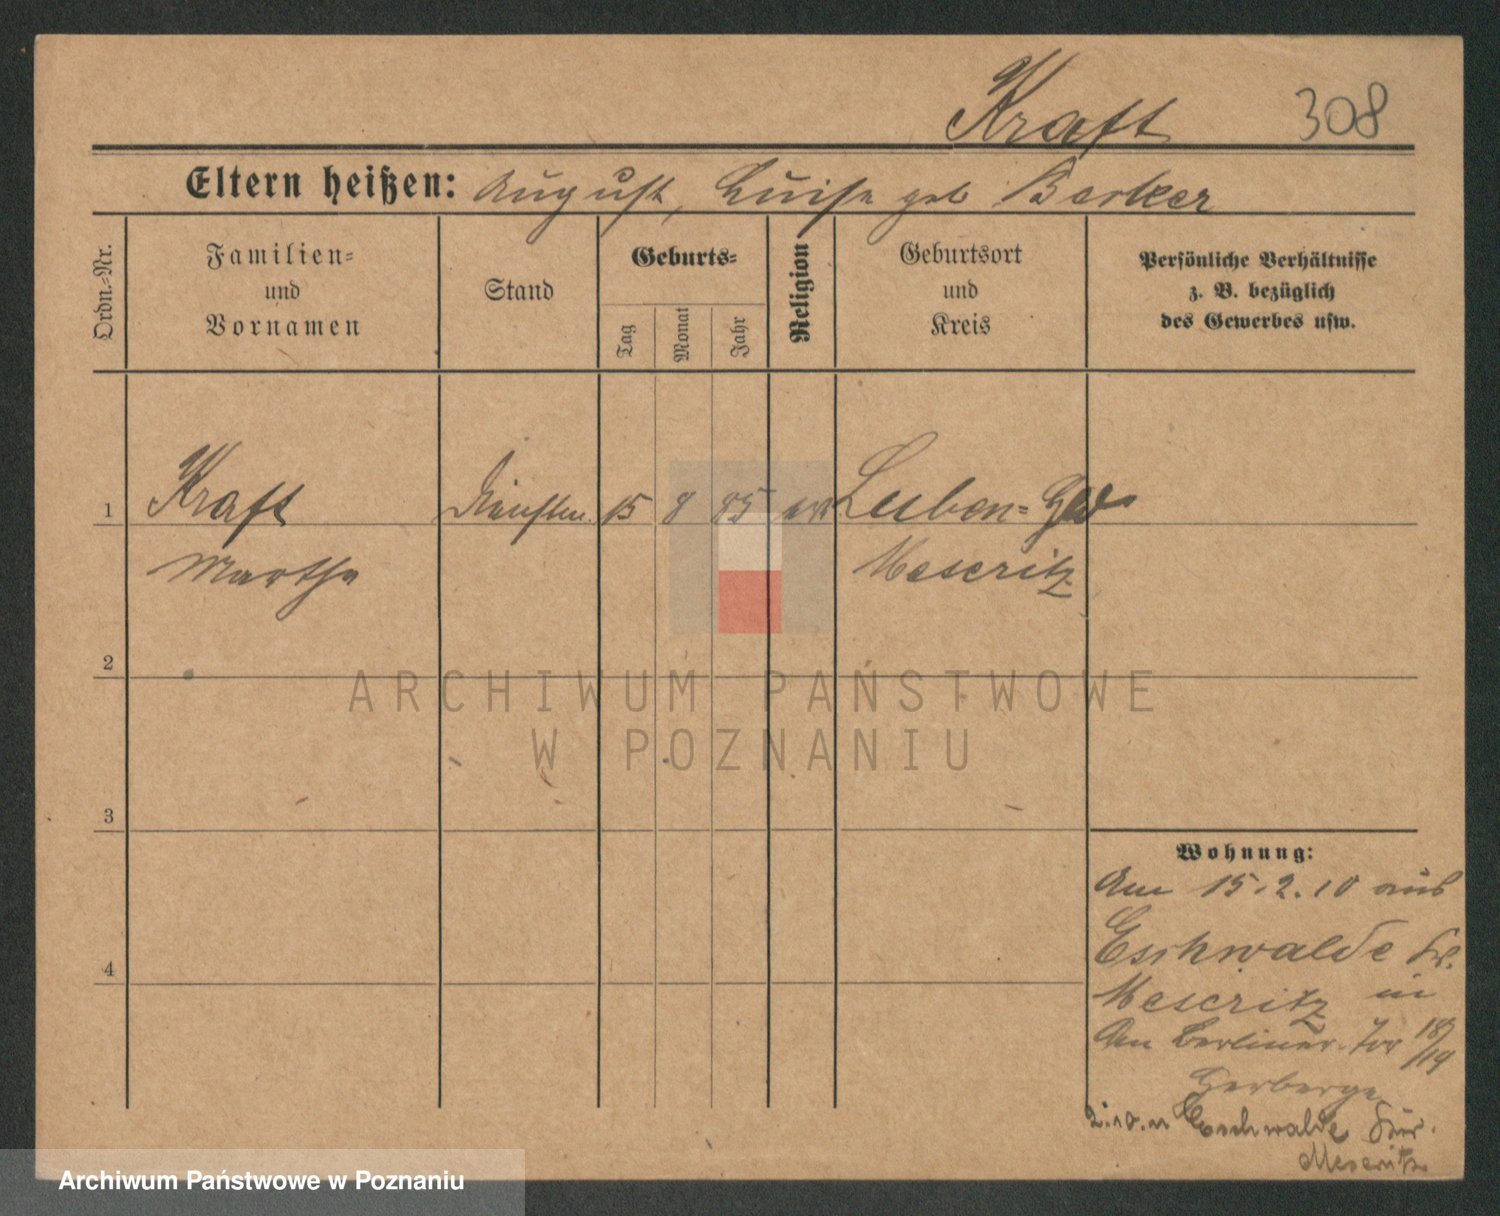 Kraft 308
Eltern heißen: August, Luise geb Barker
Ordn.-Nr.
Familien-
und
Vornamen
Stand
Geburts-
Tag
Monat
Jahr
Religion
Geburtsort
und
Kreis
Persönliche Verhältnisse
z. B. bezüglich
des Gewerbes usw.
1 Kraft 15 8 85 Luben-
Martha Meseritz
2
3
4
Wohnung:
Am 15.2.10 aus
Eschwalde Kr.
Meseritz in
Am Berliner-Tor 18/19
Herberge
Eschwalde
Meseritz
ARCHIWUM PAŃSTWOWE
W POZNANIU
Archiwum Państwowe w Poznaniu